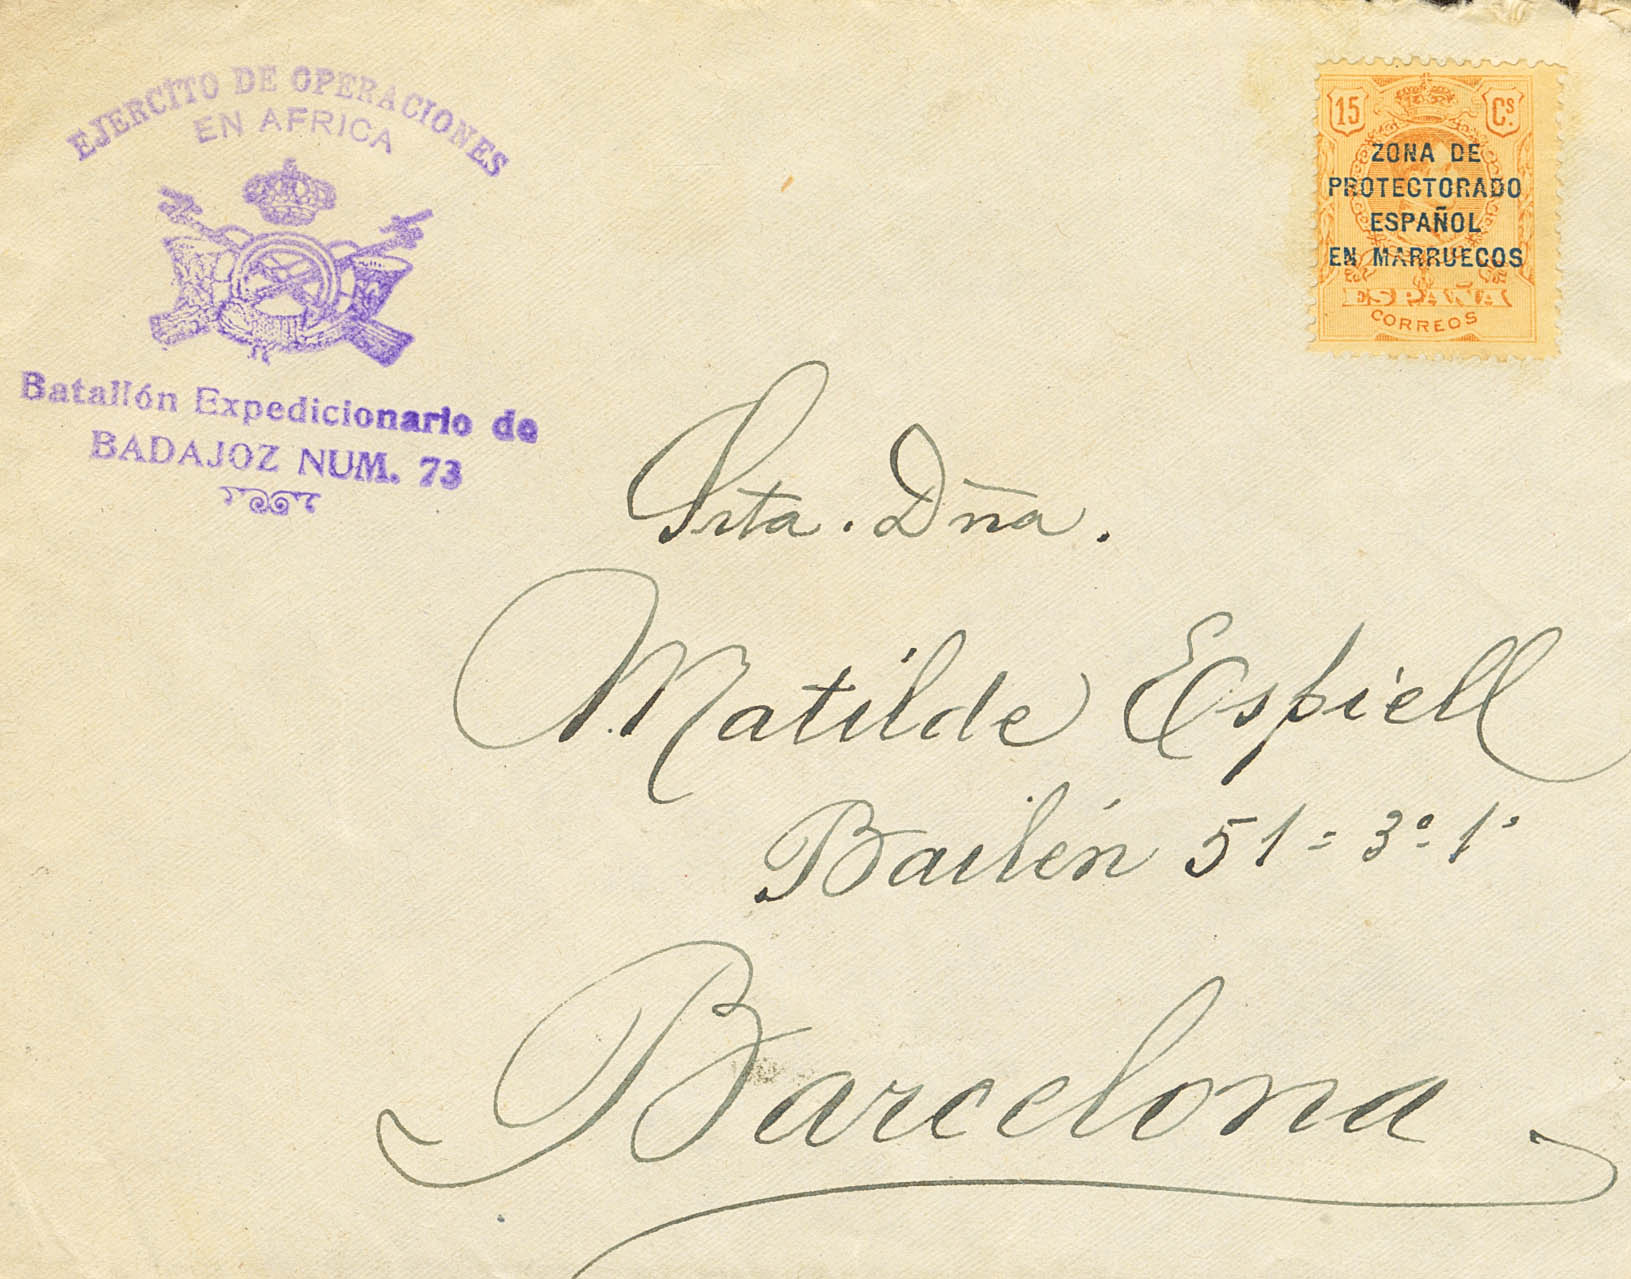 EJERCITO DE OPERACIONES
EN AFRICA
Batallón Expedicionario de
BADAJOZ NUM. 73
15 Cs.
ZONA DE
PROTECTORADO
ESPAÑOL
EN MARRUECOS
ESPAÑA
CORREOS
Srta. Dña.
Matilde Espiell
Bailén 51 = 3º 1ª
Barcelona